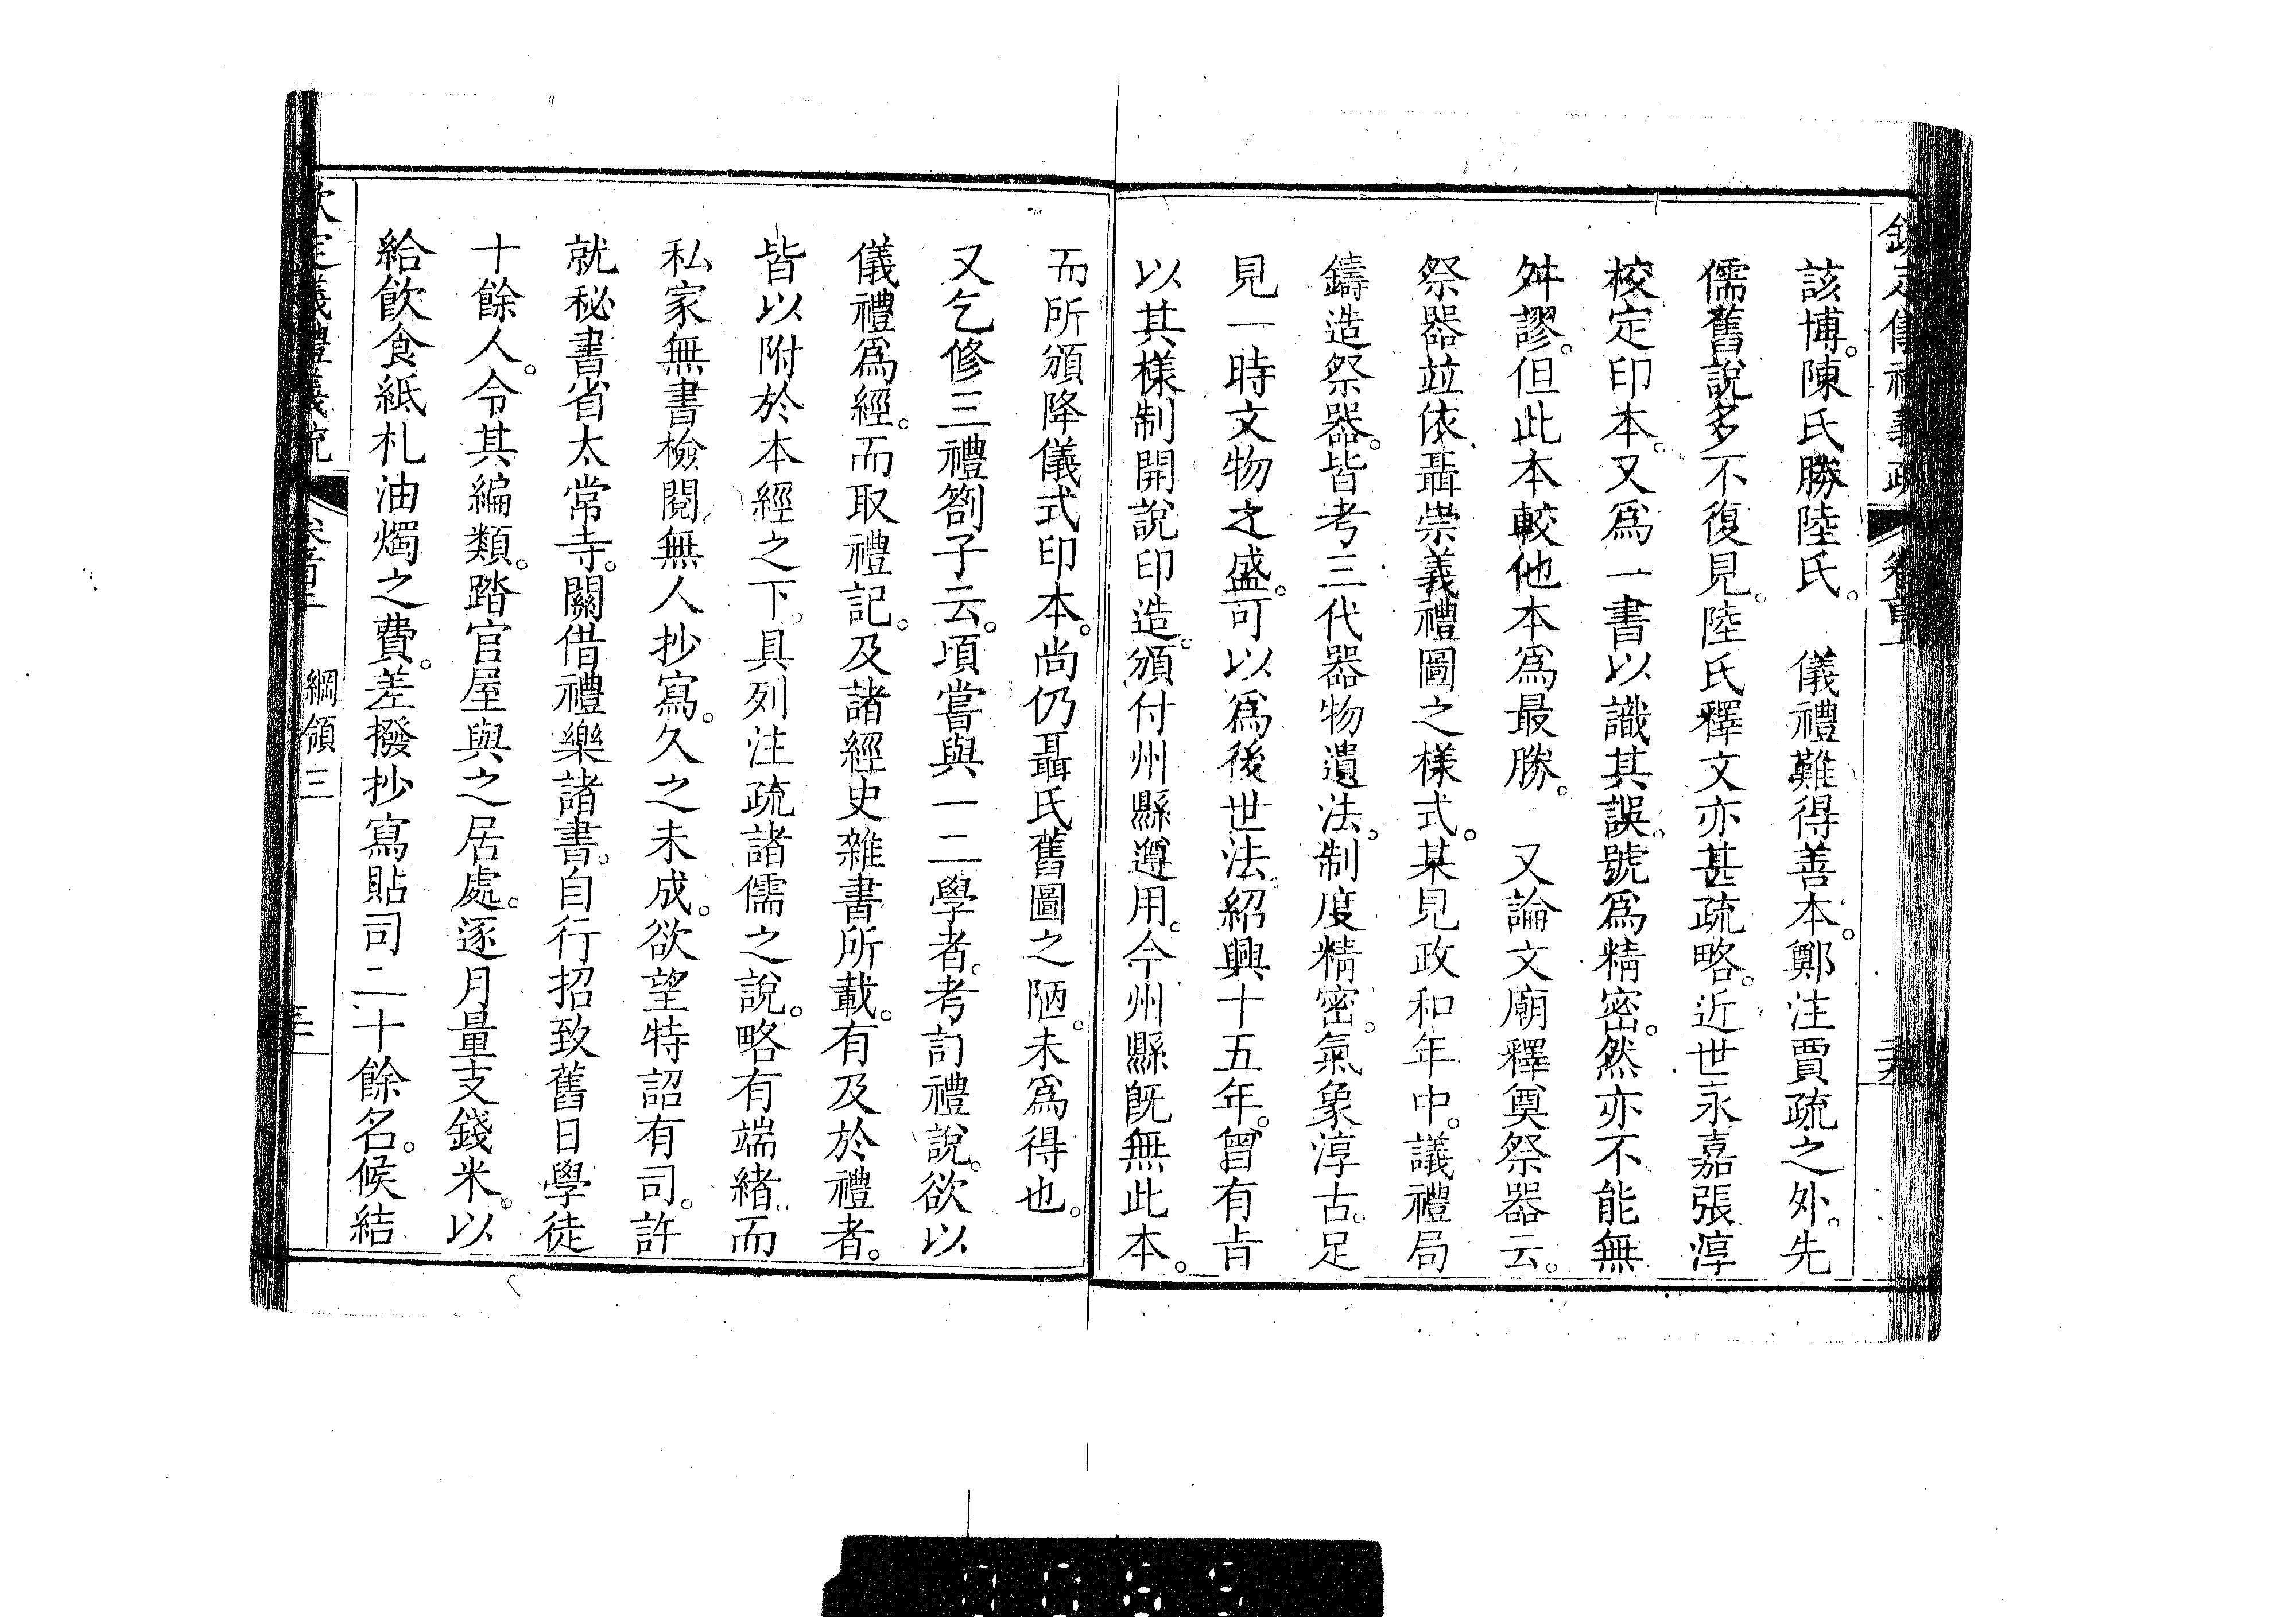 該博。陳氏勝陸氏。　儀禮難得善本。鄭注賈疏之外。先
儒舊說多不復見。陸氏釋文亦甚疏略。近世永嘉張淳
校定印本。又爲一書以識其誤。號爲精密。然亦不能無
舛謬。但此本較他本爲最勝。　又論文廟釋奠祭器云。
祭器竝依聶崇義禮圖之樣式。某見政和年中。議禮局
鑄造祭器。皆考三代器物遺法。制度精密。氣象淳古。足
見一時文物之盛。可以爲後世法。紹興十五年。曾有旨
以其樣制開說印造。頒付州縣遵用。今州縣旣無此本。
而所頒降儀式印本。尚仍聶氏舊圖之陋。未爲得也。
又乞修三禮劄子云。頃嘗與一二學者。考訂禮說。欲以
儀禮爲經。而取禮記。及諸經史雜書所載。有及於禮者。
皆以附於本經之下。具列注疏諸儒之說。略有端緒。而
私家無書檢閱。無人抄寫。久之未成。欲望特詔有司。許
就秘書省太常寺。關借禮樂諸書。自行招致舊日學徒
十餘人。令其編類。踏官屋與之居處。逐月量支錢米。以
給飲食紙札油燭之費。差撥抄寫貼司二十餘名。候結
定儀禮義疏
綱領三